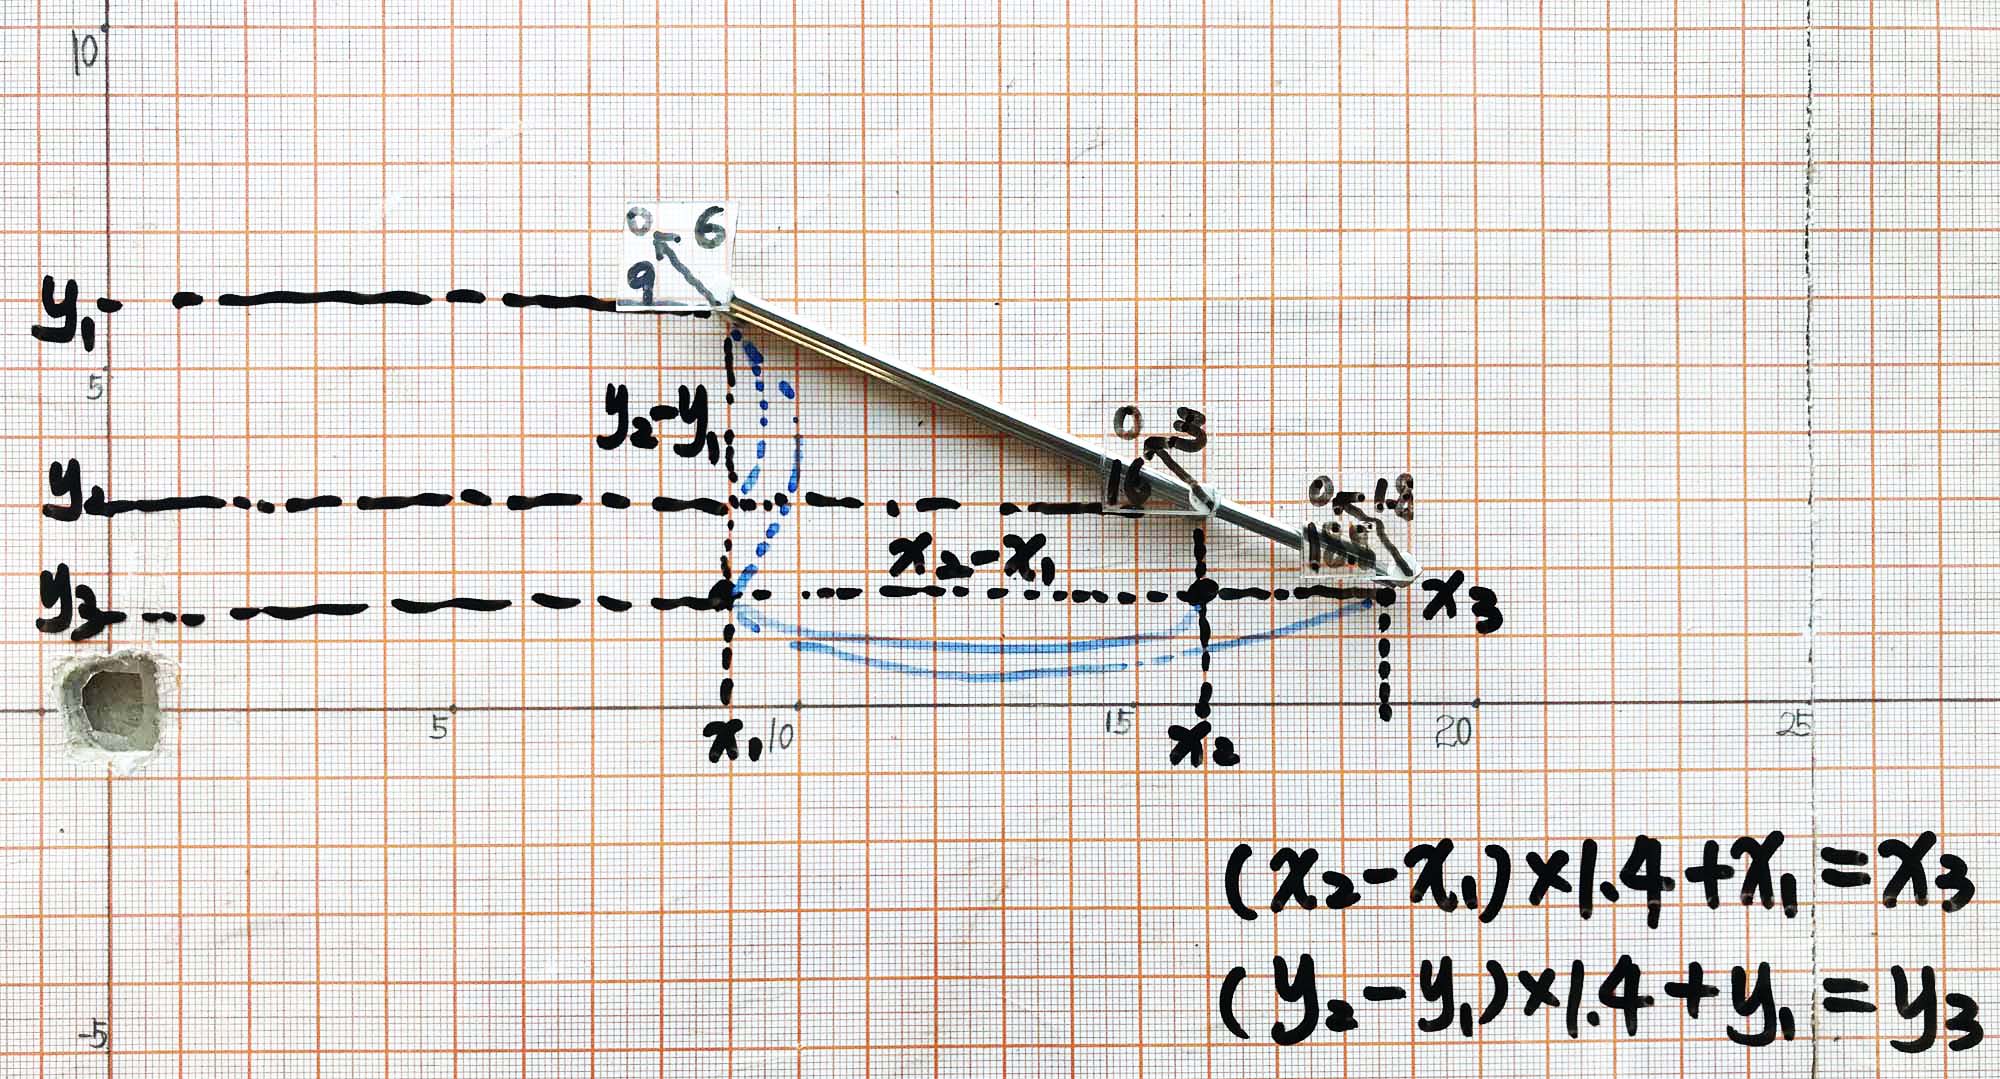 10
0 6
9
y₁
5
y₂-y₁
0 3
16
y₂
0 1.8
x₂-x₁
y₃
x₃
5
x₁
10
15
x₂
20
25
(x₂-x₁)×1.4+x₁=x₃
(y₂-y₁)×1.4+y₁=y₃
-5